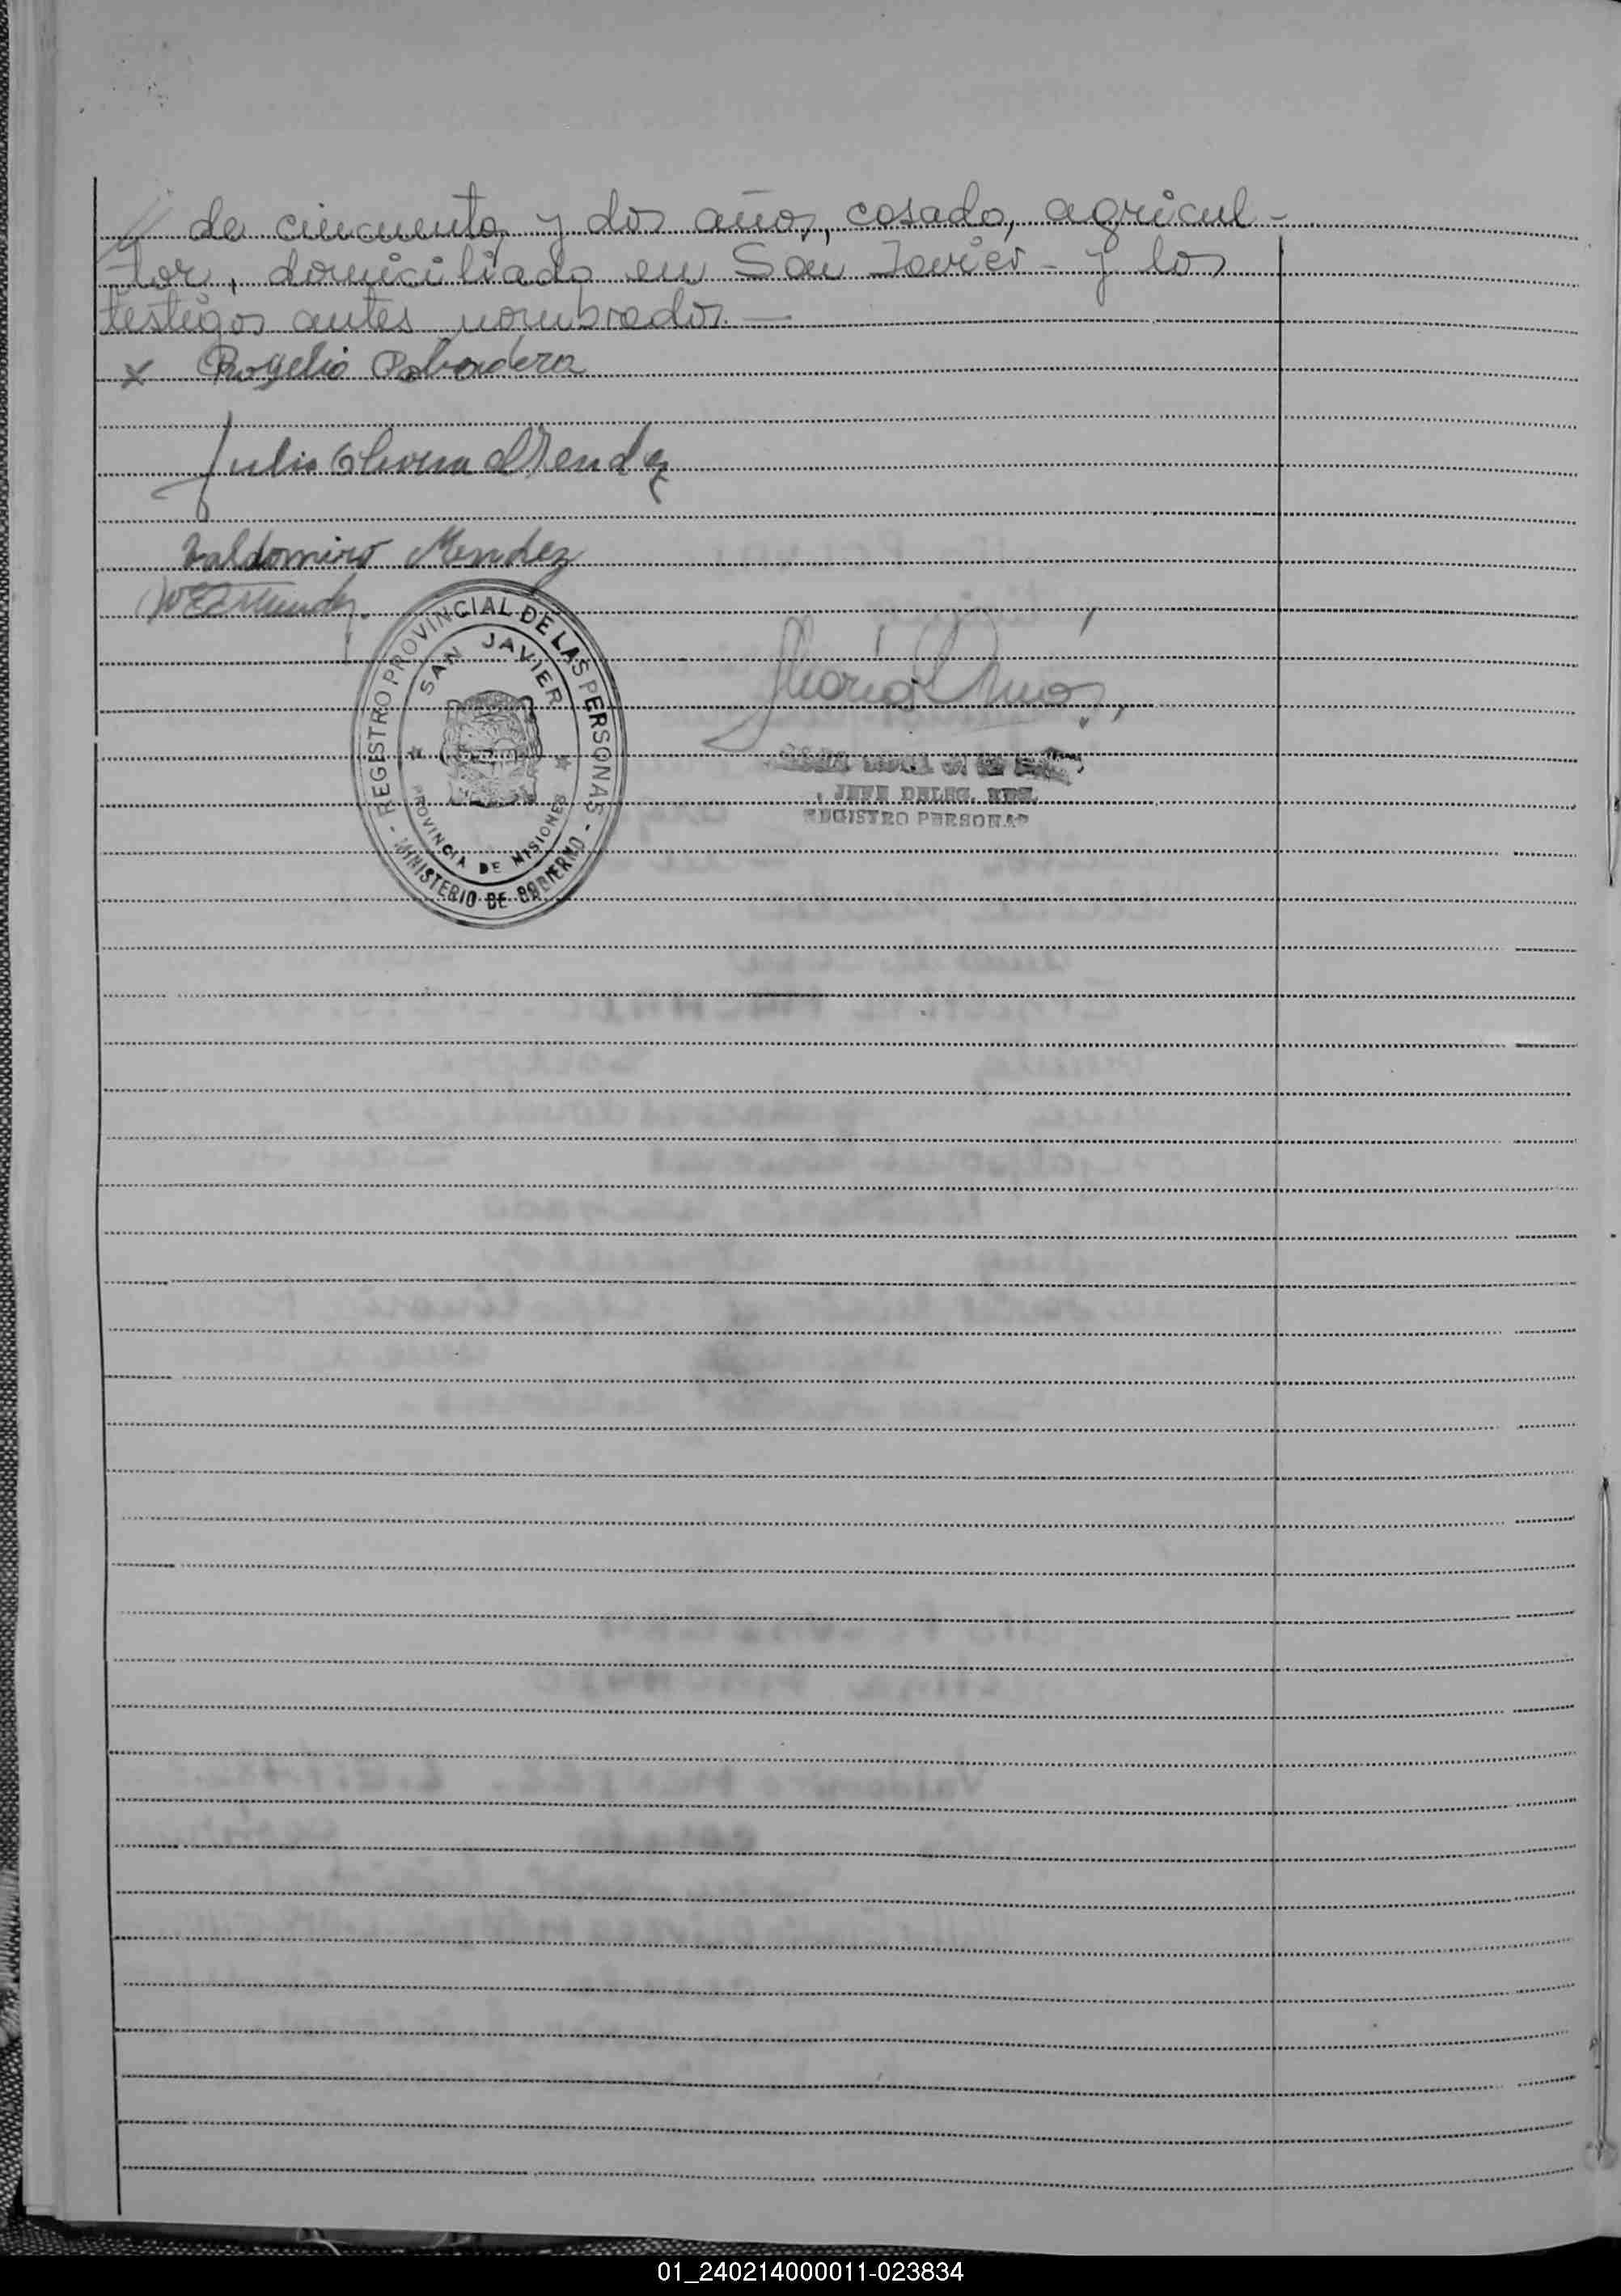 // de cincuenta y dos años, casado, agricul-
tor, domiciliado en San Javier - y los
testigos antes nombrados. —
x Rogelio
Julio Olivera Mendez
Valdomiro Mendez
REGISTRO PROVINCIAL DE LAS PERSONAS
SAN JAVIER
PROVINCIA DE MISIONES
- MINISTERIO DE GOBIERNO -
JEFE DELEG.
REGISTRO PERSONAS
01_240214000011-023834